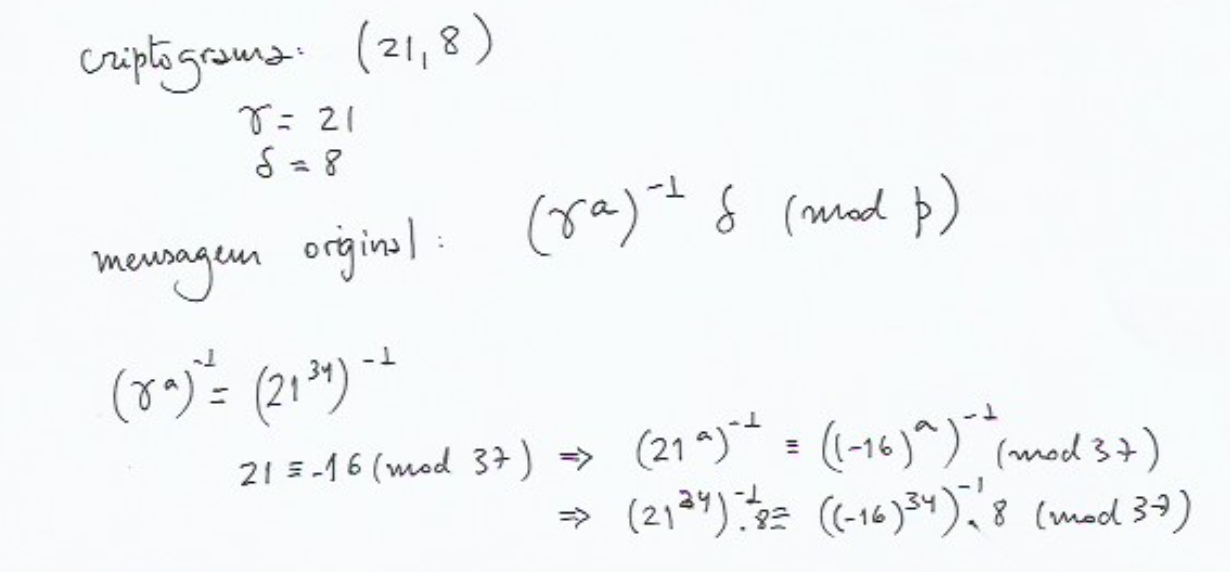 criptograma: (21, 8)
γ = 21
δ = 8
mensagem original: (γ^a)^-1 δ (mod p)
(γ^a)^-1 = (21^34)^-1
21 ≡ -16 (mod 37) ⇒ (21^a)^-1 ≡ ((-16)^a)^-1 (mod 37)
⇒ (21^34)^-1 . 8 ≡ ((-16)^34)^-1 . 8 (mod 37)